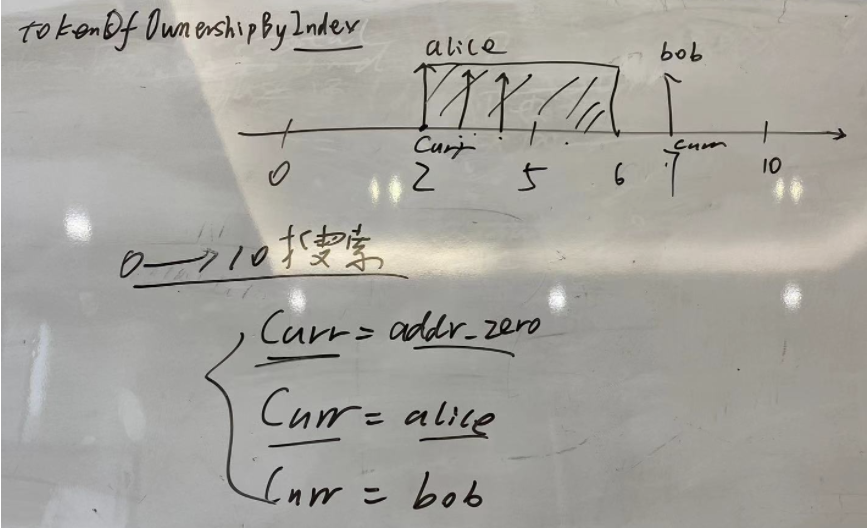 tokenOfOwnershipByIndex
alice
bob
curr
curr
0
2
5
6
7
10
0→10搜索
Curr = addr_zero
Curr = alice
Curr = bob